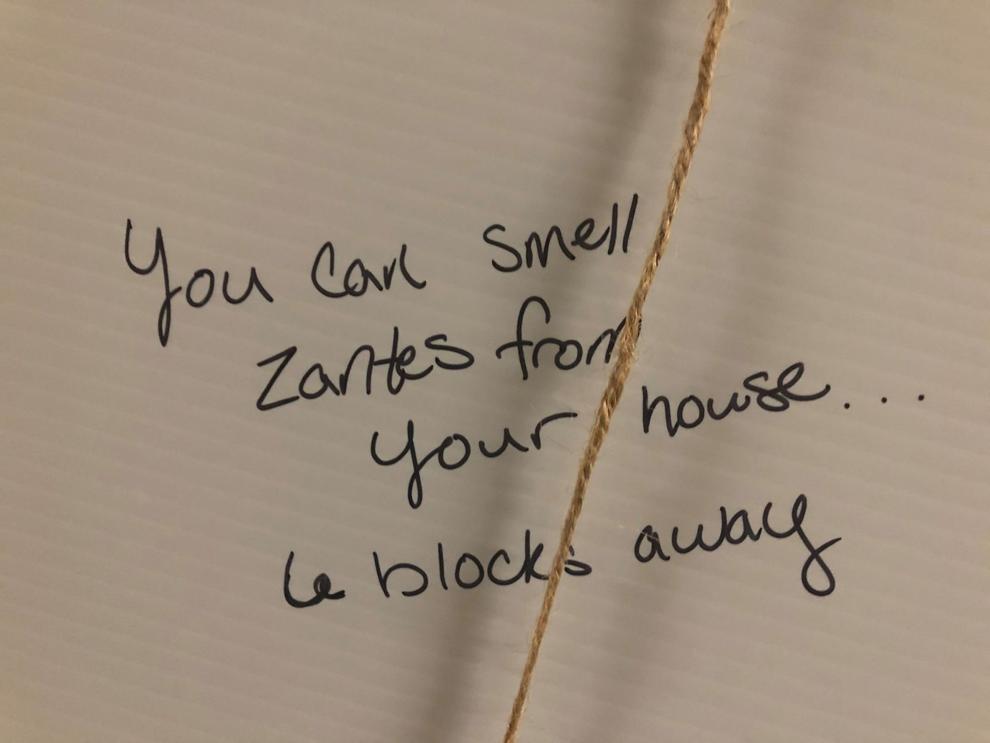 You can smell
Zantes from
your house...
6 blocks away